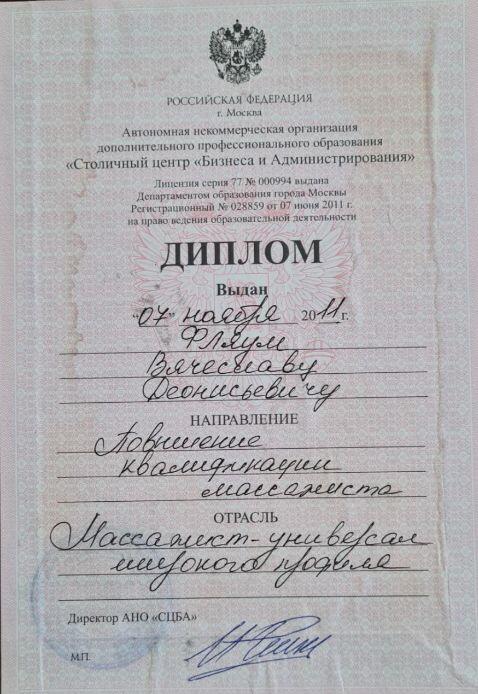 РОССИЙСКАЯ ФЕДЕРАЦИЯ
г. Москва
Автономная некоммерческая организация
дополнительного профессионального образования
«Столичный центр «Бизнеса и Администрирования»
Лицензия серия 77 № 000994 выдана
Департаментом образования города Москвы
Регистрационный № 028859 от 07 июня 2011 г.
на право ведения образовательной деятельности
ДИПЛОМ
Выдан
"07" ноября 2011 г.
Фляум
Вячеславу
Деонисьевичу
НАПРАВЛЕНИЕ
Повышение
квалификации
массажиста
ОТРАСЛЬ
Массажист-универсал
широкого профиля
Директор АНО «СЦБА»
М.П.